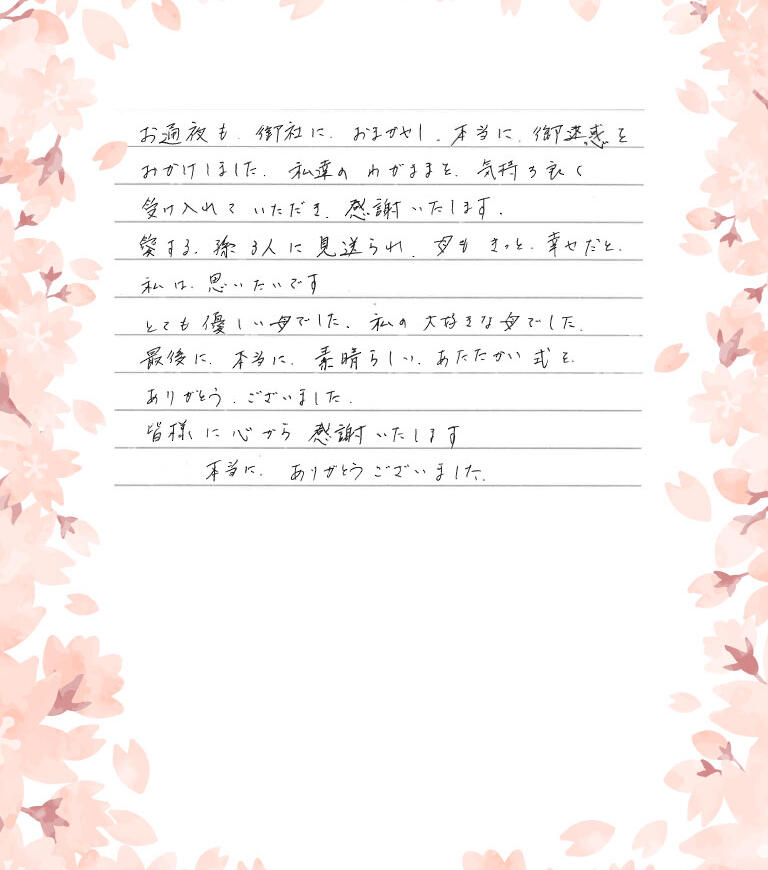 お通夜も、御社に、おまかせし、本当に、御迷惑を
おかけしました。私達の わがままを、気持ち良く
受け入れて いただき、感謝いたします。
愛する、孫3人に 見送られ、母も きっと、幸せだと、
私は、思いたいです
とても 優しい母でした。私の 大好きな母でした。
最後に、本当に、素晴らしい、あたたかい 式を、
ありがとう、ございました。
皆様に 心から 感謝いたします
本当に、ありがとうございました。